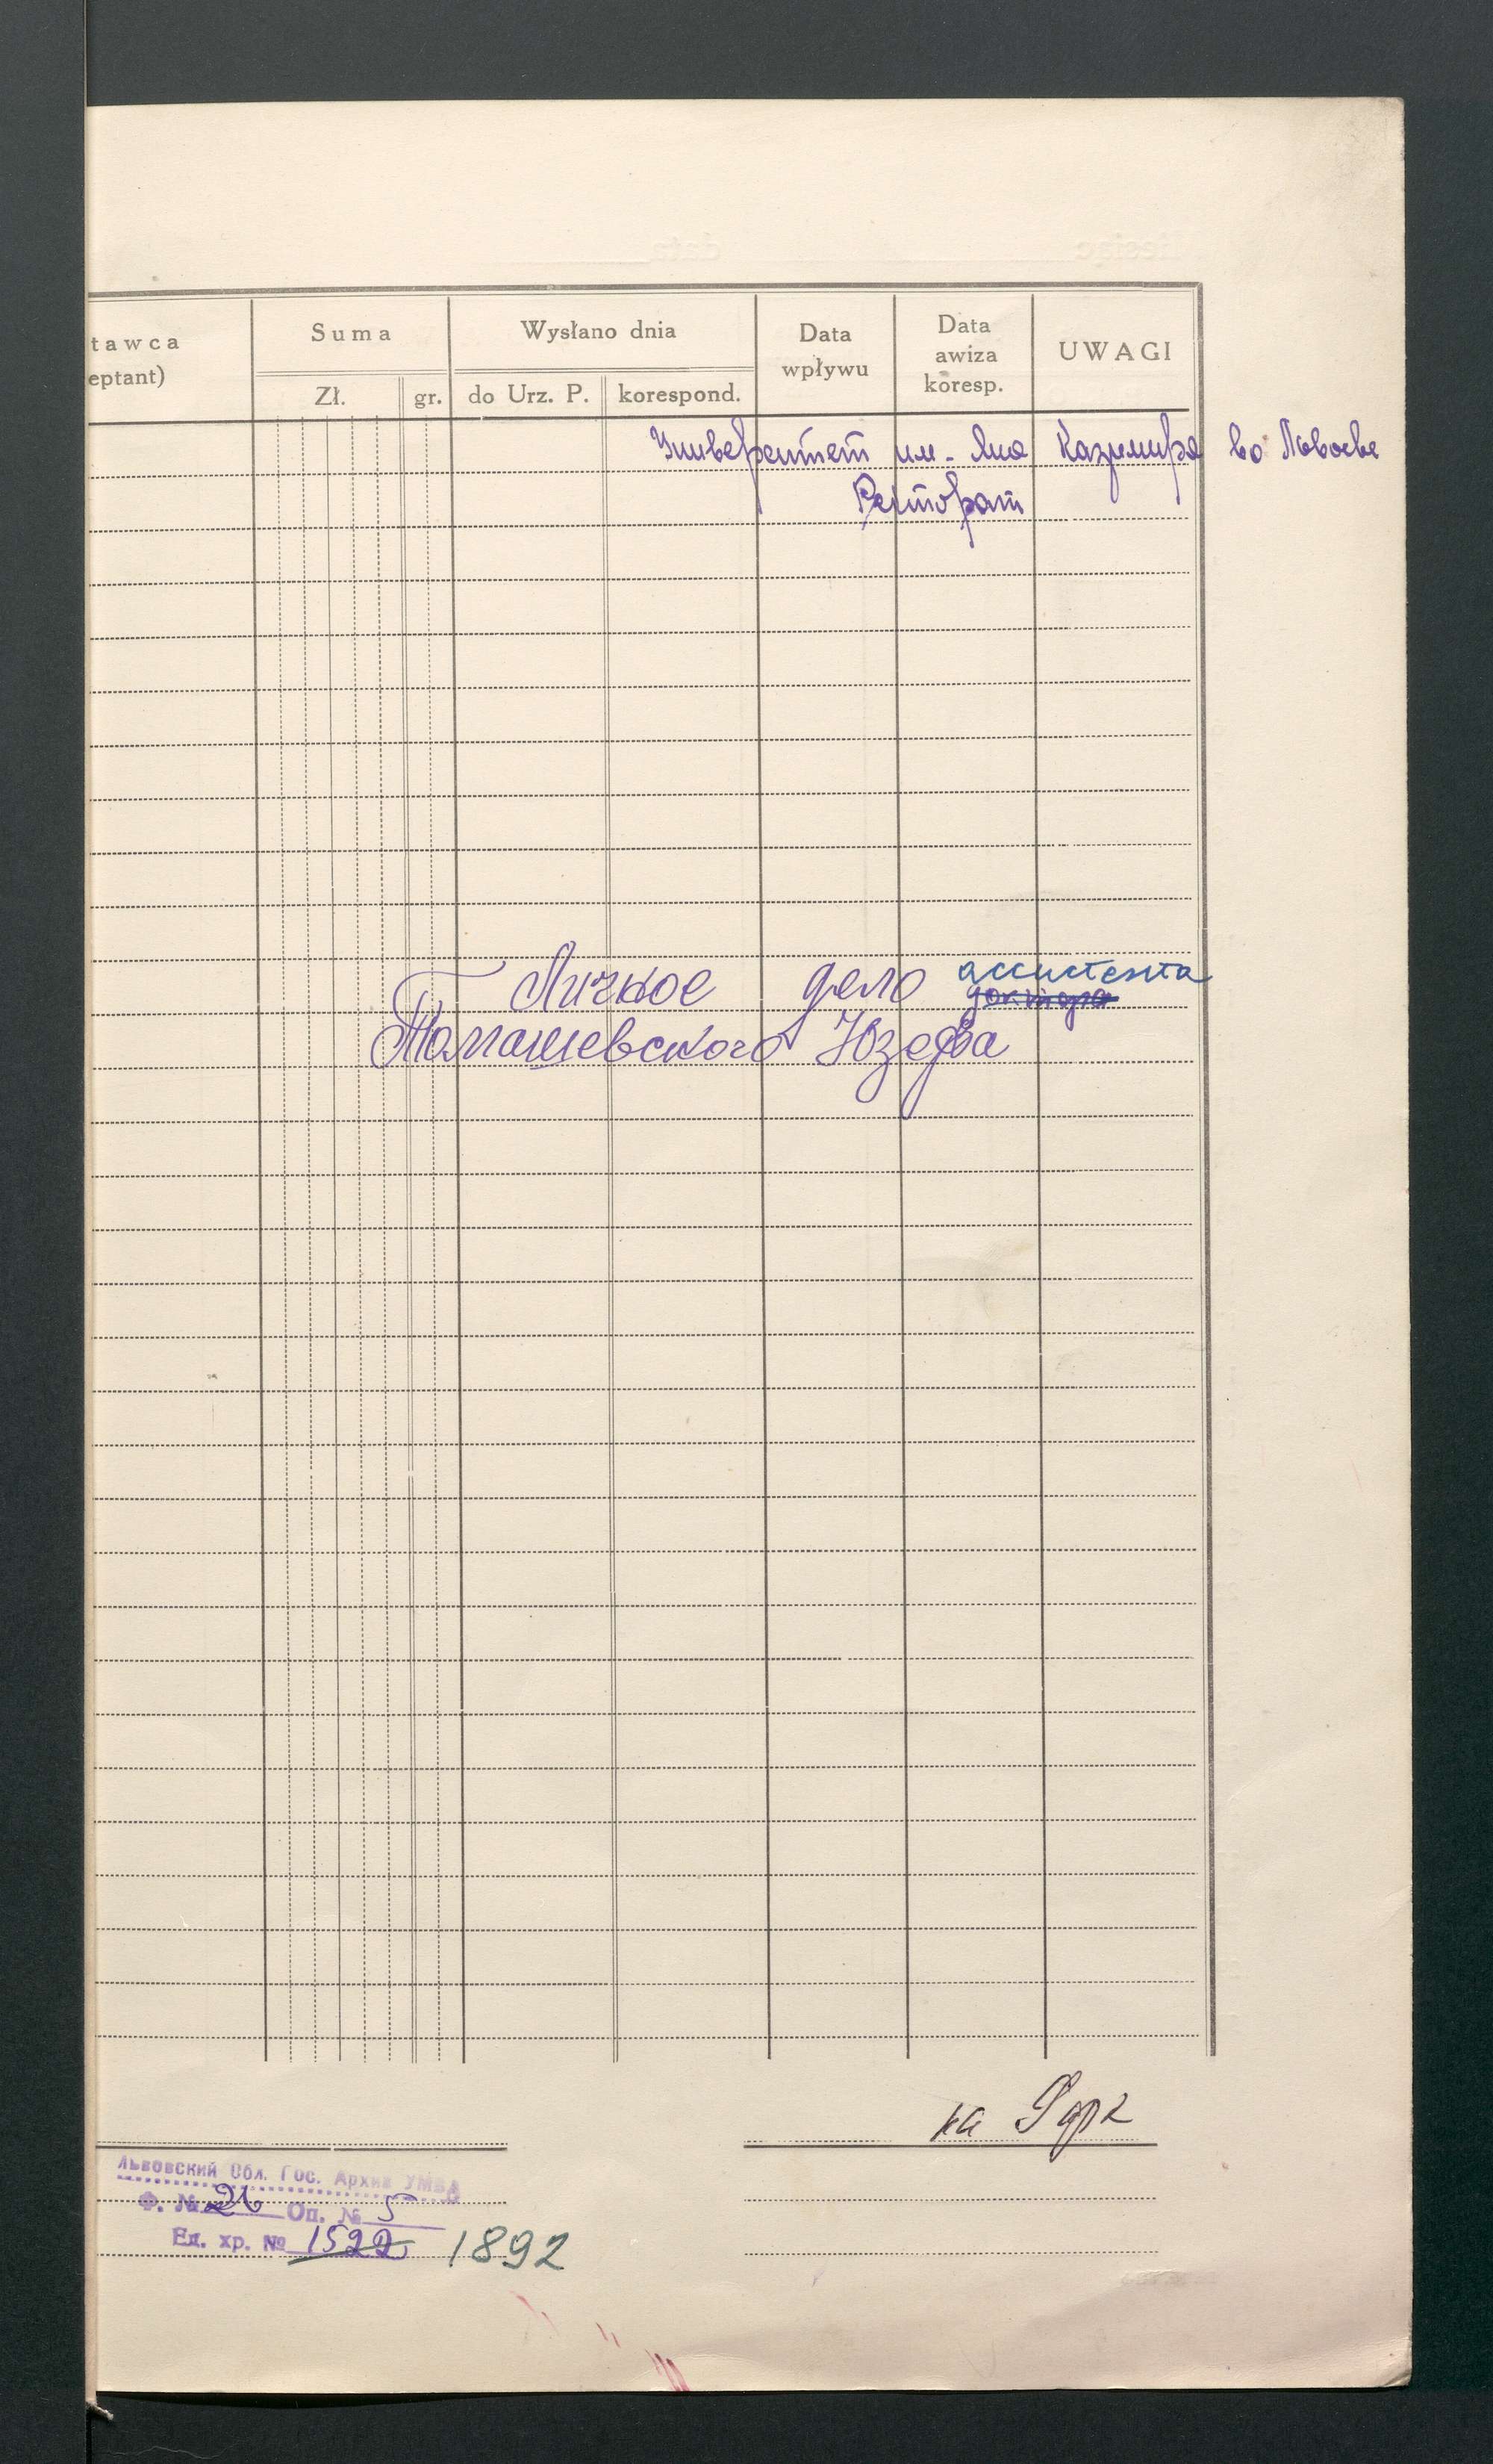 tawca
eptant)
Suma
Zł.
gr.
Wysłano dnia
do Urz. P.
korespond.
Data
wpływu
Data
awiza
koresp.
UWAGI
Университет им. Яна Казимира во Львове
Ректорат
Личное дело ассистента
доктора
Томашевского Юзефа
на 9
Львовский Обл. Гос. Архив УМВД
Ф. № 26 Оп. № 5
Ед. хр. № 1522 1892